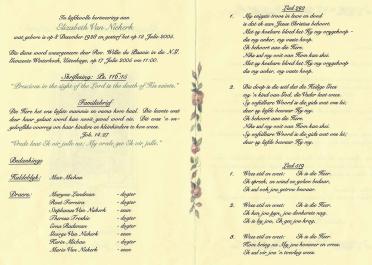 In liefdevolle herinnering aan
Elizabeth Van Niekerk
wat gebore is op 8 Desember 1928 en gesterf het op 12 Julie 2005.
Die diens word waargeneem deur Ds. Willie du Plessis in die N.G.
Gemeente Winterhoek, Uitenhage, op 17 Julie 2005 om 11:00.
Skriflesing: Ps. 116:15
"Precious in the sight of the Lord is the death of His saints."
Familiebrief
Die Here het ons liefste mamma en ouma kom haal. Die leemte wat
deur haar gelaat word kan nooit gevul word nie. Dis was 'n
voorbeeld vir haar kinders en kleinkinders
Joh. 14:27
"Vrede laat Ek vir julle na; My vrede gee Ek vir julle."
Bedankings
Huldeblyk: Max Michau
Draers:
Maryna Landman - dogter
René Ferreira - dogter
Stephanus Van Niekerk - seun
Theresa - dogter
Erna - dogter
George Van Niekerk - seun
Karin Michau - dogter
Mario Van Niekerk - seun
Lied 292
1. My enigste troos in lewe en dood
is dat ek aan Jesus Christus behoort.
Met sy kosbare bloed het Hy my vrygekoop -
die my anker, my vaste hoop.
Ek behoort aan die Here.
Niks sal my ooit van Hom kan skei.
Met sy kosbare bloed het Hy my vrygekoop -
die my anker, my vaste hoop.
2. Die doop is die seël dat die Heilige Gees
my 'n kind van God, die Vader laat wees.
Sy onfeilbare Woord is die gids wat ons lei;
deur sy liefde bewaar Hy my.
Ek behoort aan die Here.
Niks sal my ooit van Hom kan skei.
Sy onfeilbare Woord is die gids wat ons lei;
deur sy liefde bewaar Hy my.
Lied 519
1. Wees stil en weet: Ek is die Heer.
Ek sal ook jou getroue bewaar.
2. Wees stil en weet: Ek is die Heer.
Ek is by jou, Ek gee jou krag.
3. Wees stil en weet: Ek is die Heer.
Ek sal vir jou 'n toevlug wees.